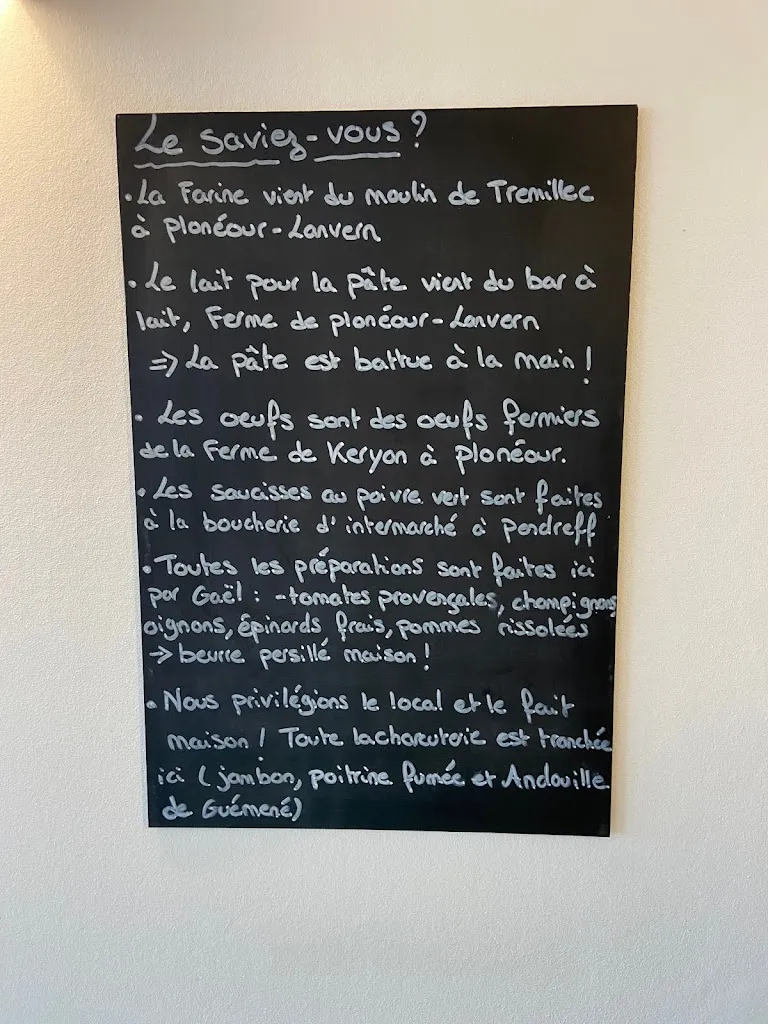 Le saviez-vous ?
• La Farine vient du moulin de Tremillec
à plonéour-Lanvern
• Le lait pour la pâte vient du bar à
lait, Ferme de plonéour-Lanvern
=> La pâte est battue à la main !
• Les oeufs sont des oeufs fermiers
de la Ferme de Keryon à plonéour.
• Les saucisses au poivre vert sont faites
à la boucherie d'intermarché à Pendreff
• Toutes les préparations sont faites ici
par Gaël : - tomates provençales, champignons
oignons, épinards frais, pommes rissolées
→ beurre persillé maison !
• Nous privilégions le local et le fait
maison ! Toute la charcuterie est tranchée
ici ( jambon, poitrine fumée et Andouille
de Guémené)